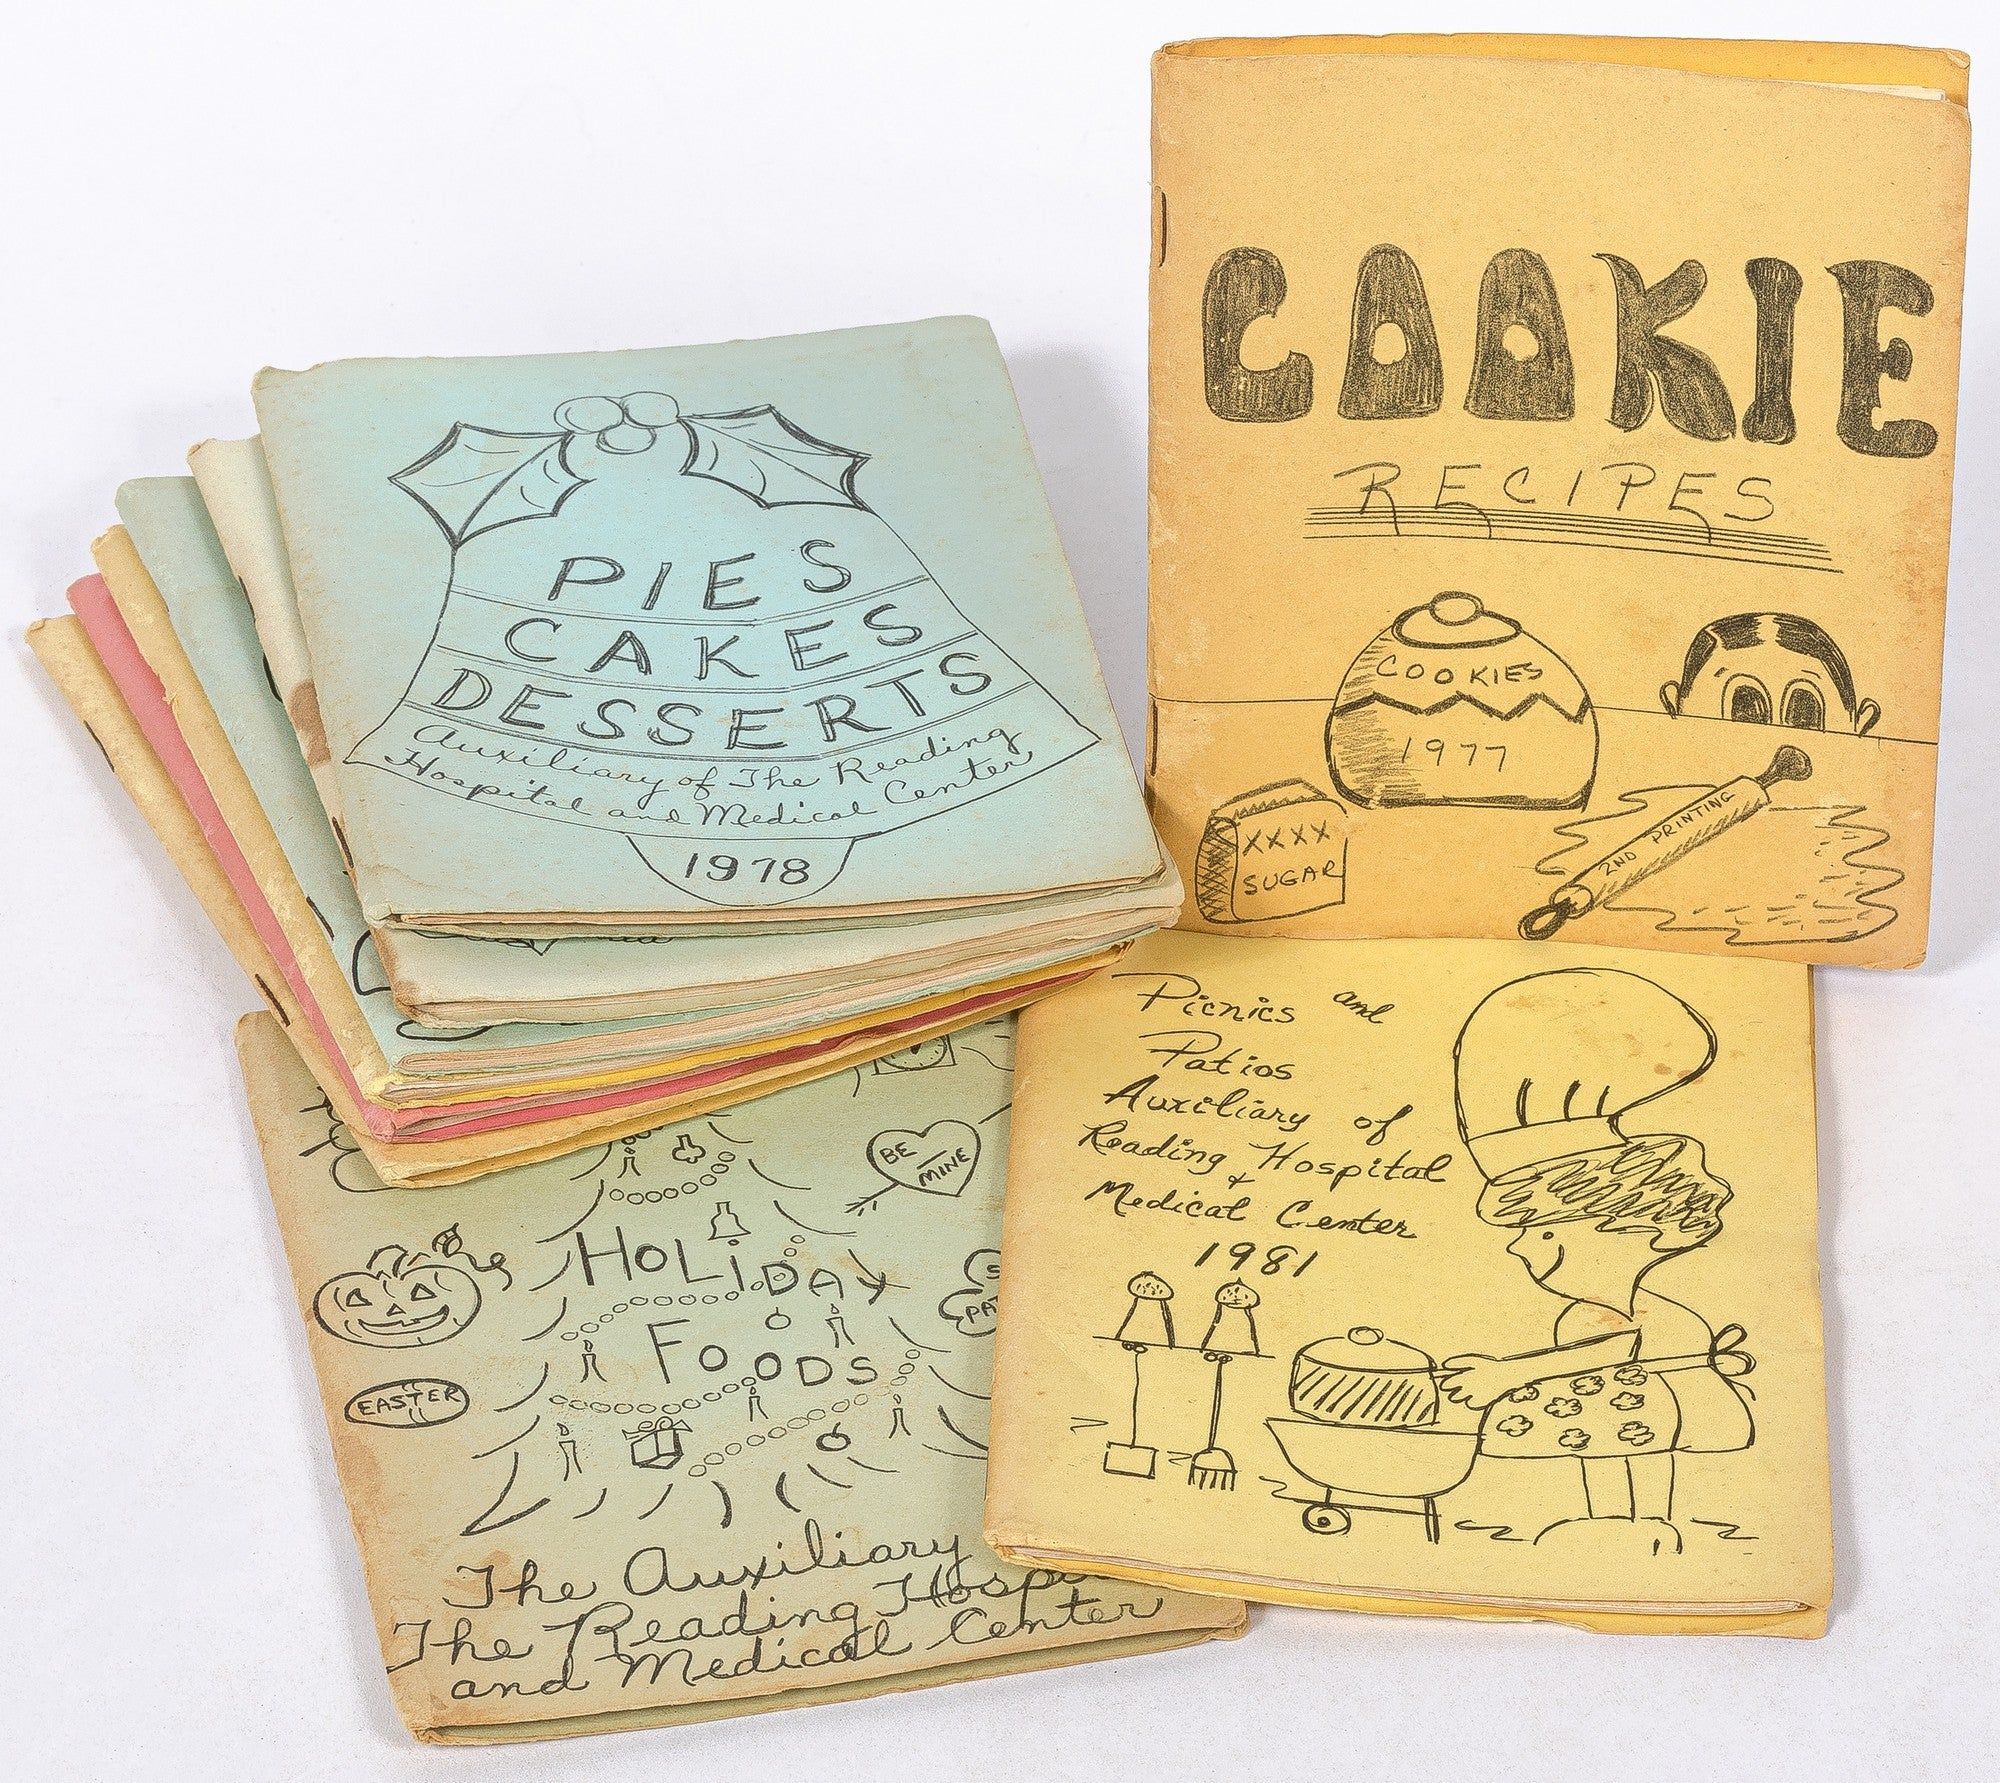 PIES
CAKES
DESSERTS
Auxiliary of The Reading
Hospital and Medical Center
1978
COOKIE
RECIPES
COOKIES
1977
XXXX
SUGAR
2ND PRINTING
Picnics and
Patios
Auxiliary of
Reading Hospital
+
Medical Center
1981
BE
MINE
HOLIDAY
FOODS
EASTER
The Auxiliary
The Reading
and Medical Center